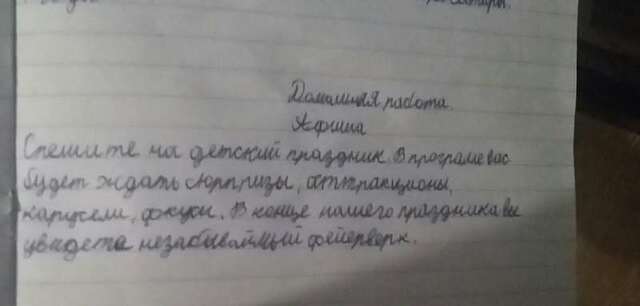 Домашняя работа.
Афиша
Спешите на детский праздник. В програме вас
будет ждать сюрпризы, аттракционы,
карусели, фокусы. В конце нашего праздника вы
увидета незабывваймый фейерверк.